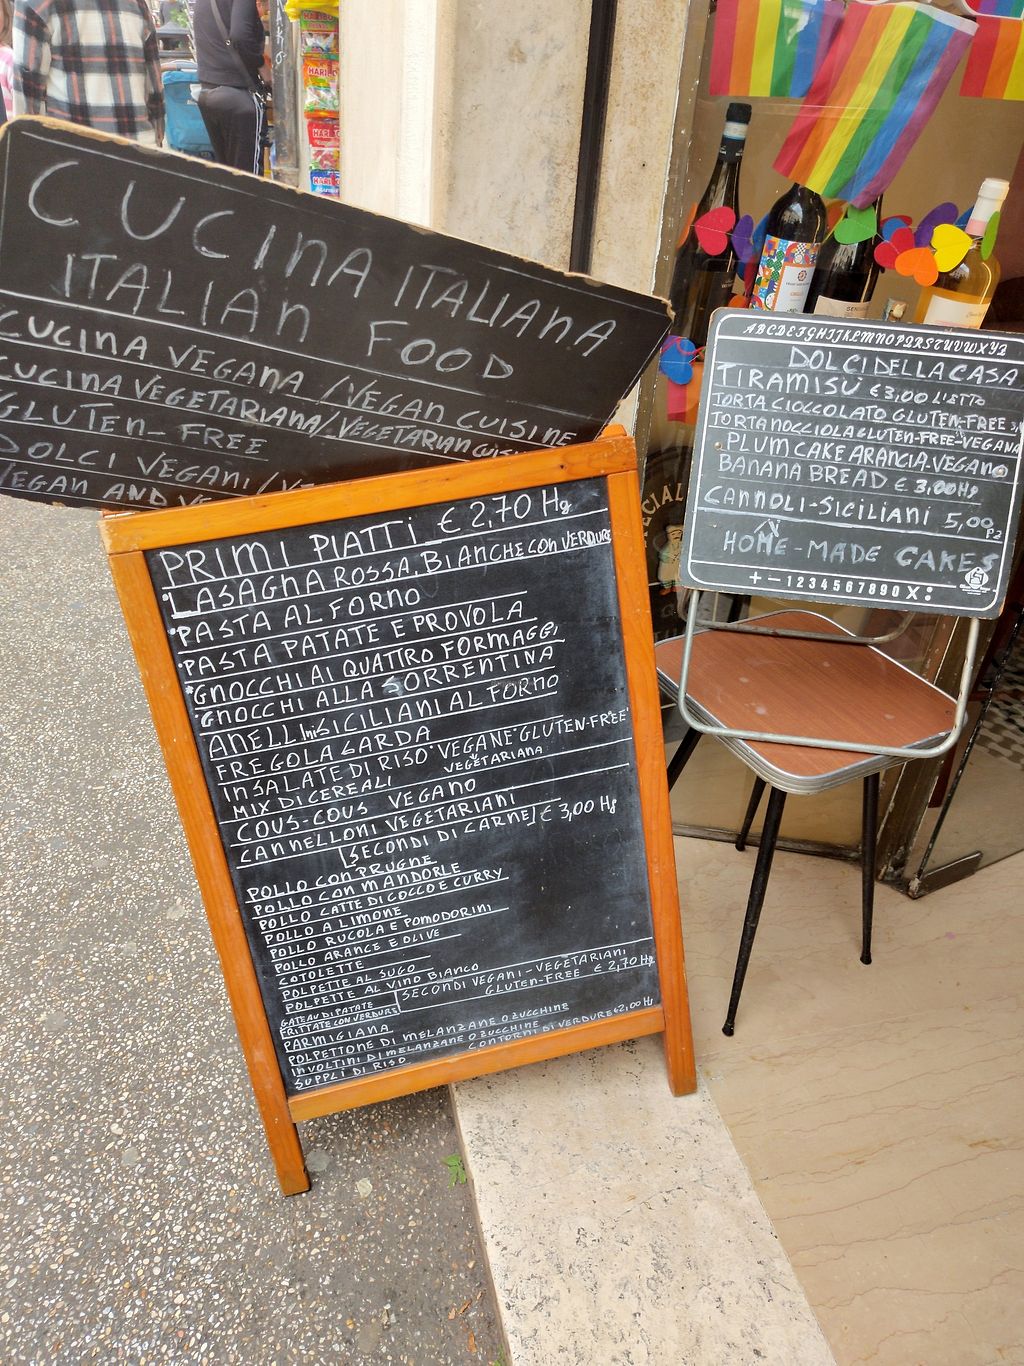 CUCINA ITALIANA
ITALIAN FOOD
CUCINA VEGANA / VEGAN CUISINE
CUCINA VEGETARIANA / VEGETARIAN
GLUTEN-FREE
DOLCI VEGANI /
VEGAN AND
PRIMI PIATTI € 2,70 Hg
LASAGNA ROSSA, BIANCHE CON VERDURE
PASTA AL FORNO
PASTA PATATE E PROVOLA
GNOCCHI AI QUATTRO FORMAGGI
GNOCCHI ALLA SORRENTINA
ANELLINI SICILIANI AL FORNO
FREGOLA SARDA
INSALATE DI RISO "VEGANE" GLUTEN-FREE"
MIX DI CEREALI VEGETARIANA
COUS-COUS VEGANO
CANNELLONI VEGETARIANI
[SECONDI DI CARNE] € 3,00 Hg
POLLO CON PRUGNE
POLLO CON MANDORLE
POLLO LATTE DI COCCO E CURRY
POLLO A LIMONE
POLLO RUCOLA E POMODORINI
POLLO ARANCE E OLIVE
COTOLETTE
POLPETTE AL SUGO
POLPETTE AL VINO BIANCO
SECONDI VEGANI - VEGETARIANI
GLUTEN-FREE € 2,70 Hg
GATEAU DI PATATE
FRITTATE CON VERDURE
PARMIGIANA
POLPETTONE DI MELANZANE O ZUCCHINE
INVOLTINI DI MELANZANE O ZUCCHINE
CONTORNI DI VERDURE €2,00 Hg
SUPPLI DI RISO
ABCDEFGHIJKLMNOPQRSTUVWXYZ
DOLCI DELLA CASA
TIRAMISU € 3,00 L'ETTO
TORTA CIOCCOLATO GLUTEN-FREE
TORTA NOCCIOLA GLUTEN-FREE-VEGANA
PLUM CAKE ARANCIA-VEGANO
BANANA BREAD € 3,00 Hg
CANNOLI-SICILIANI 5,00 PZ
HOME-MADE CAKES
+-1234567890X:
HARIBO
HARIBO